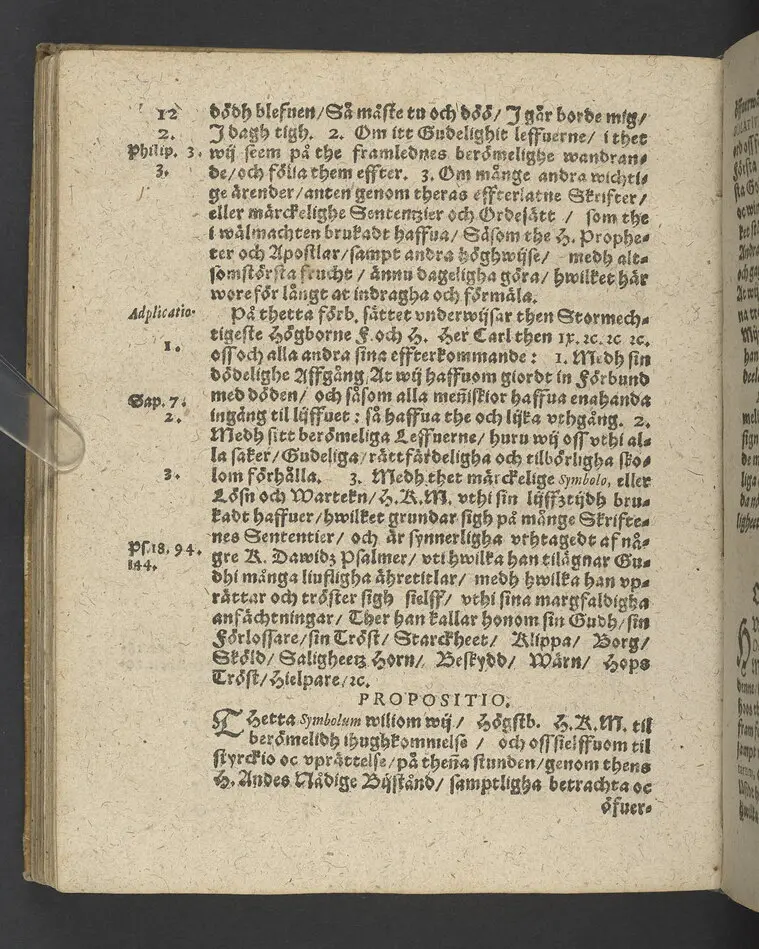 12 dödh blefuen/ Så måste tu och döö/ I går borde mig/
2. I dagh tigh. 2. Om itt Gudelighit leffuerne/ i thet
Philip. 3. wij seem på the framlednes berömelighe wandran-
3. de/ och fölia them effter. 3. Om månge andra wichti-
ge ärender/ anten genom theras effterlatne Skrifter/
eller märckelighe Sententzier och Ordesätt / som the
i wälmachten brukadt haffua/ Såsom the H. Prophe-
ter och Apostlar/ sampt andra höghwijse/ medh alt-
somstörsta frucht / ännu dageligha göra/ hwilket här
wore för långt at indragha och förmäla.
Adplicatio. På thetta förb. sättet vnderwijsar then Stormech-
tigeste Högborne F. och H. Her Carl then IX. ꝛc. ꝛc ꝛc.
1. oss och alla andra sina effterkommande: 1. Medh sin
dödelighe Affgång, At wij haffuom giordt in Förbund
Sap. 7. med döden/ och såsom alla meñiskior haffua enahanda
2. ingång til lijffuet: så haffua the och lijka vthgång. 2.
Medh sitt berömeliga Leffuerne/ huru wij oss vthi al-
la saker/ Gudeliga/ rättfärdeligha och tilbörligha sko-
3. lom förhålla. 3. Medh thet märckelige Symbolo, eller
Lösn och Wartekn/ H. K. M. vthi sin lijffztijdh bru-
kadt haffuer/ hwilket grundar sigh på månge Skrifte-
nes Sententier/ och är synnerligha vthtagedt af nå-
Ps. 18. 94. gre K. Dawidz Psalmer/ vti hwilka han tilägnar Gu-
144. dhi många liufligha ähretitlar/ medh hwilka han vp-
rättar och tröster sigh sielff/ vthi sina margfaldigha
anfächtningar/ Ther han kallar honom sin Gudh/ sin
Förlossare/ sin Tröst/ Starckheet/ Klippa/ Borg/
Sköld/ Saligheetz Horn/ Beskydd/ Wärn/ Hops
Tröst/ Hielpare/ ꝛc.
PROPOSITIO.
THetta Symbolum wiliom wij/ Högstb. H. K. M. til
berömelidh ihughkommelse / och oss sielffuom til
styrckio oc vprättelse/ på theña stunden/ genom thens
H. Andes Nådige Bijstånd/ samptligha betrachta oc
öfuer-